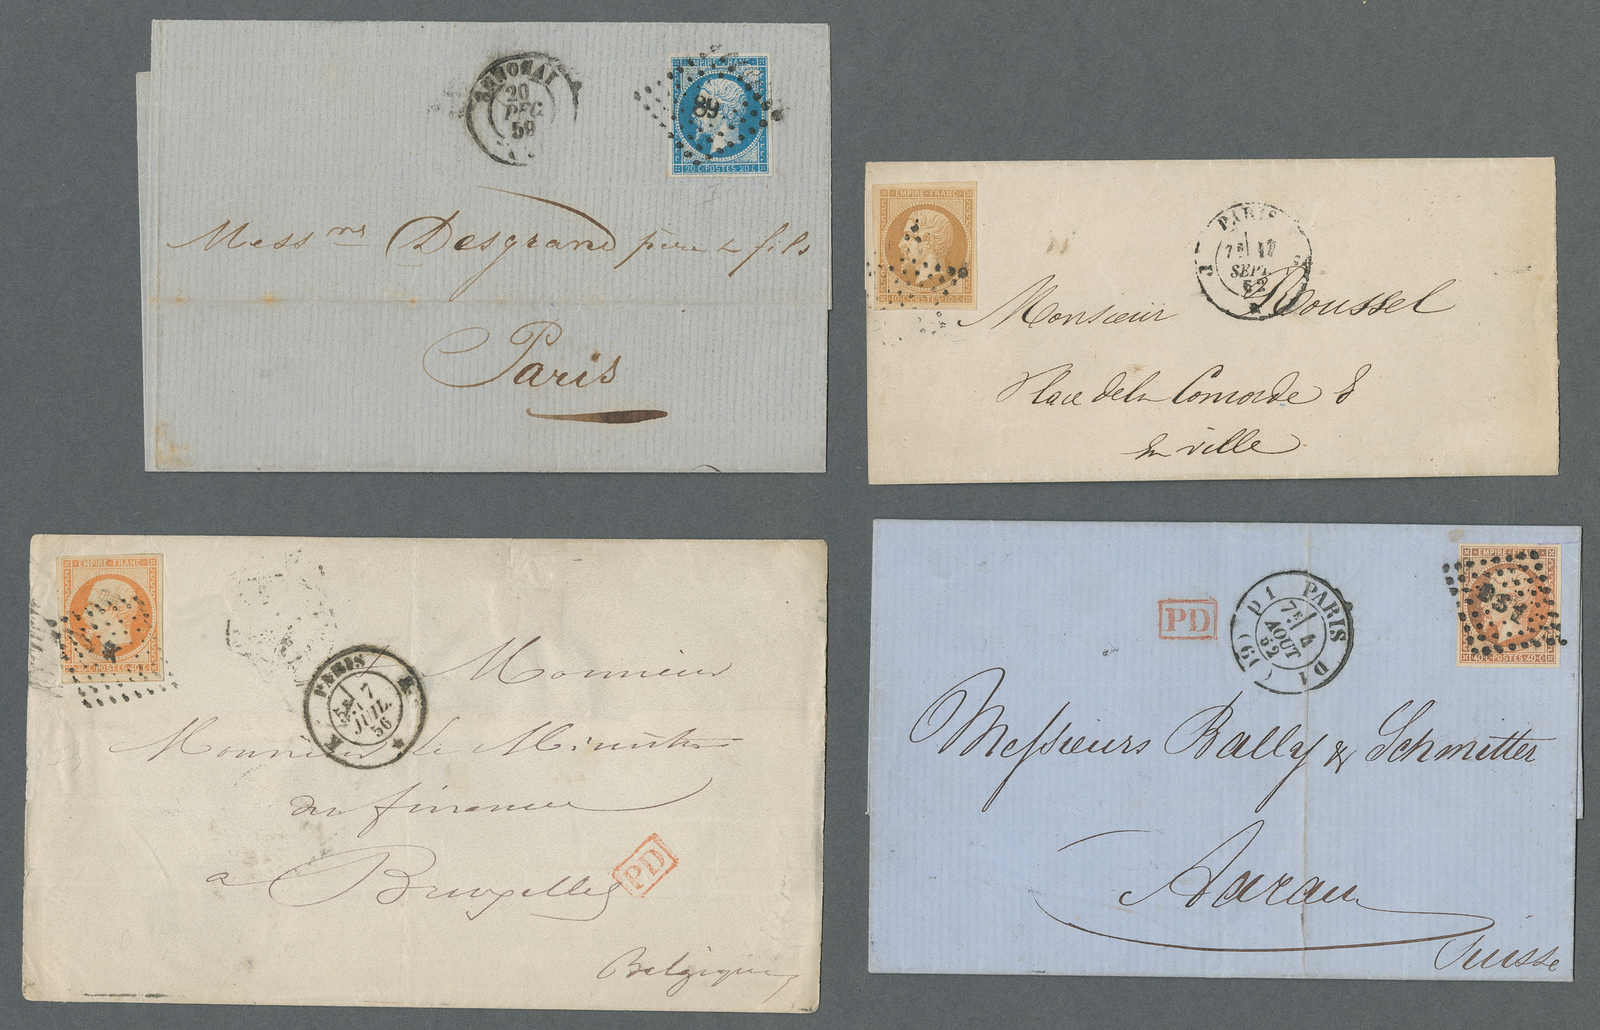 20
DEC
59
EMPIRE · FRANC
89
20 C · POSTES · 20 C
Mess rs Desgrand père & fils
Paris
EMPIRE · FRANC
10 · C · POSTES · 10 · C
PARIS
SEPT
52
Monsieur Roussel
Place de la Concorde 8
En ville
EMPIRE · FRANC
PARIS
7
JUIL.
56
K
K
Monsieur
Monsieur le Ministre
des finances
a Bruxelles
PD
Belgique
EMPIRE
40 · C · POSTES · 40 · C
PD
D1 PARIS D1
7E 4
AOUT
(61)
Messieurs Bally & Schmitter
Aarau
Suisse